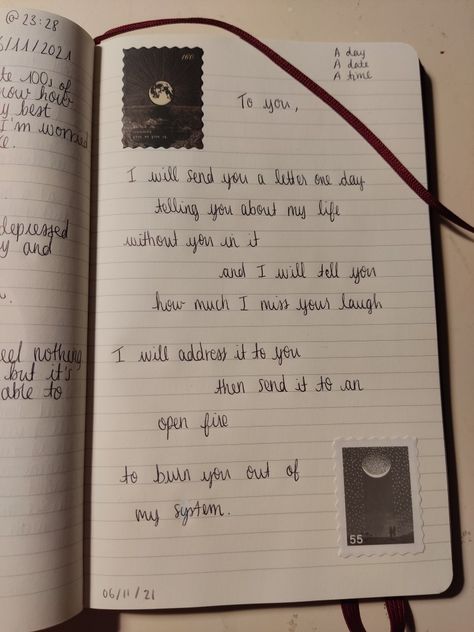 @ 23:28
/11/2021
100s of
how
best
I'm worried
depressed
and
nothing
but it's
able to
A day
A date
A time
To you,
I will send you a letter one day
telling you about my life
without you in it
and I will tell you
how much I miss your laugh
I will address it to you
then send it to an
open fire
to burn you out of
my system.
55
06/11/21